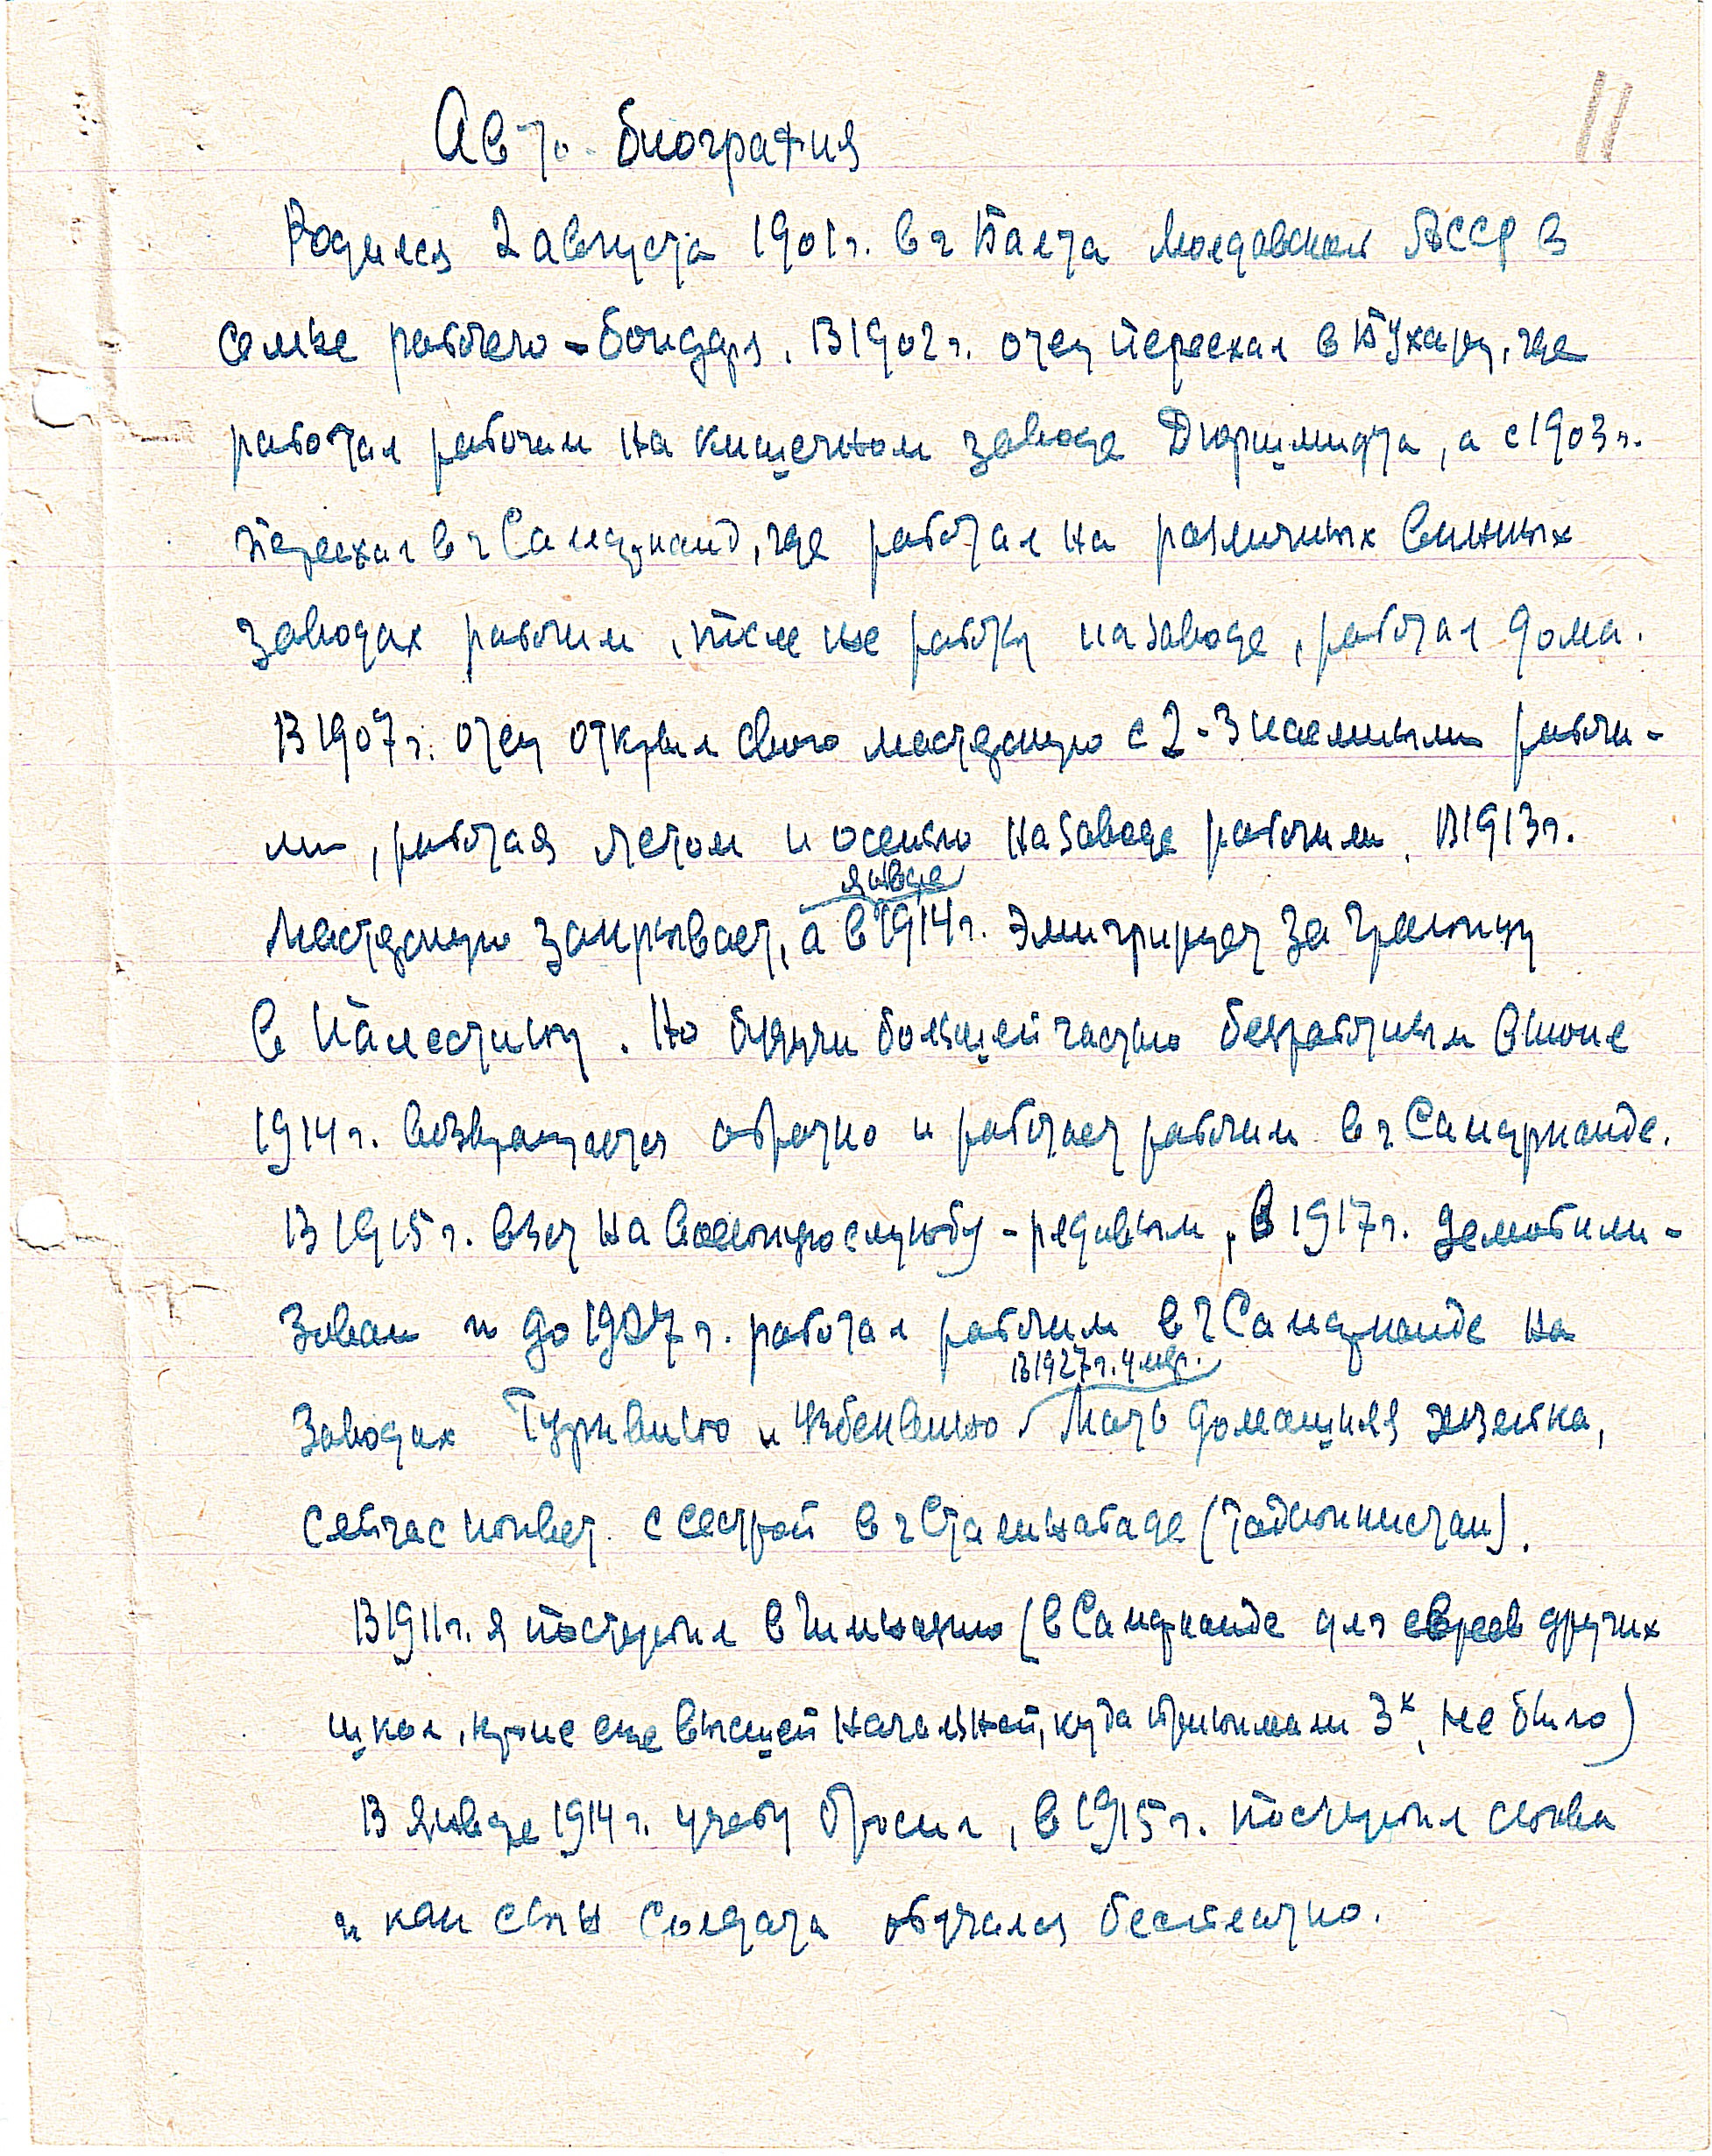 11
Авто-биография
Родился 2 августа 1901 г. в г Балта Молдавской АССР в
семье рабочего - бондаря. В 1902 г. отец переехал в Бухару, где
работал рабочим на кишечном заводе Дюршмидта, а с 1903 г.
переехал в г Самарканд, где работал на различных винных
заводах рабочим, после же работы на заводе, работал дома.
В 1907 г. отец открыл свою мастерскую с 2-3 наемными рабочи-
ми, работая летом и осенью на заводе рабочим. В 1913 г.
январе
мастерскую закрывает, а в 1914 г. эмигрирует за границу
в Палестину. Но будучи большей частью безработным в июне
1914 г. возвращается обратно и работает рабочим в г Самарканде.
В 1915 г. взят на военную службу - рядовым, в 1917 г. демобили-
зован и до 1927 г. работал рабочим в г Самарканде на
В 1927 г. умер.
заводах Турквино и Узбеквино Мать домашняя хозяйка,
сейчас живет с сестрой в г Сталинабаде (Таджикистан).
В 1911 г. я поступил в гимназию (в Самарканде для евреев других
школ, кроме еще высшей начальной, куда принимали 3х, не было)
В январе 1914 г. учебу бросил, в 1915 г. поступил снова
и как сын солдата обучался бесплатно.